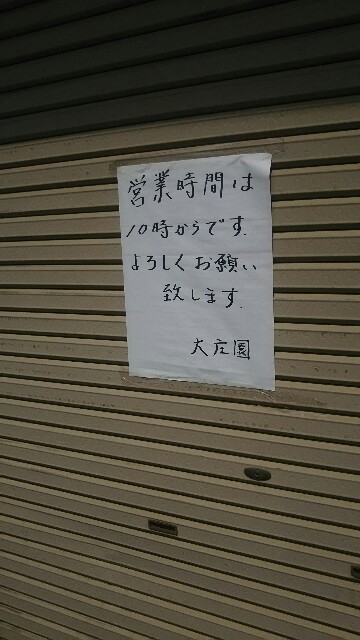 営業時間は
10時からです.
よろしくお願い
致します.
大庄園